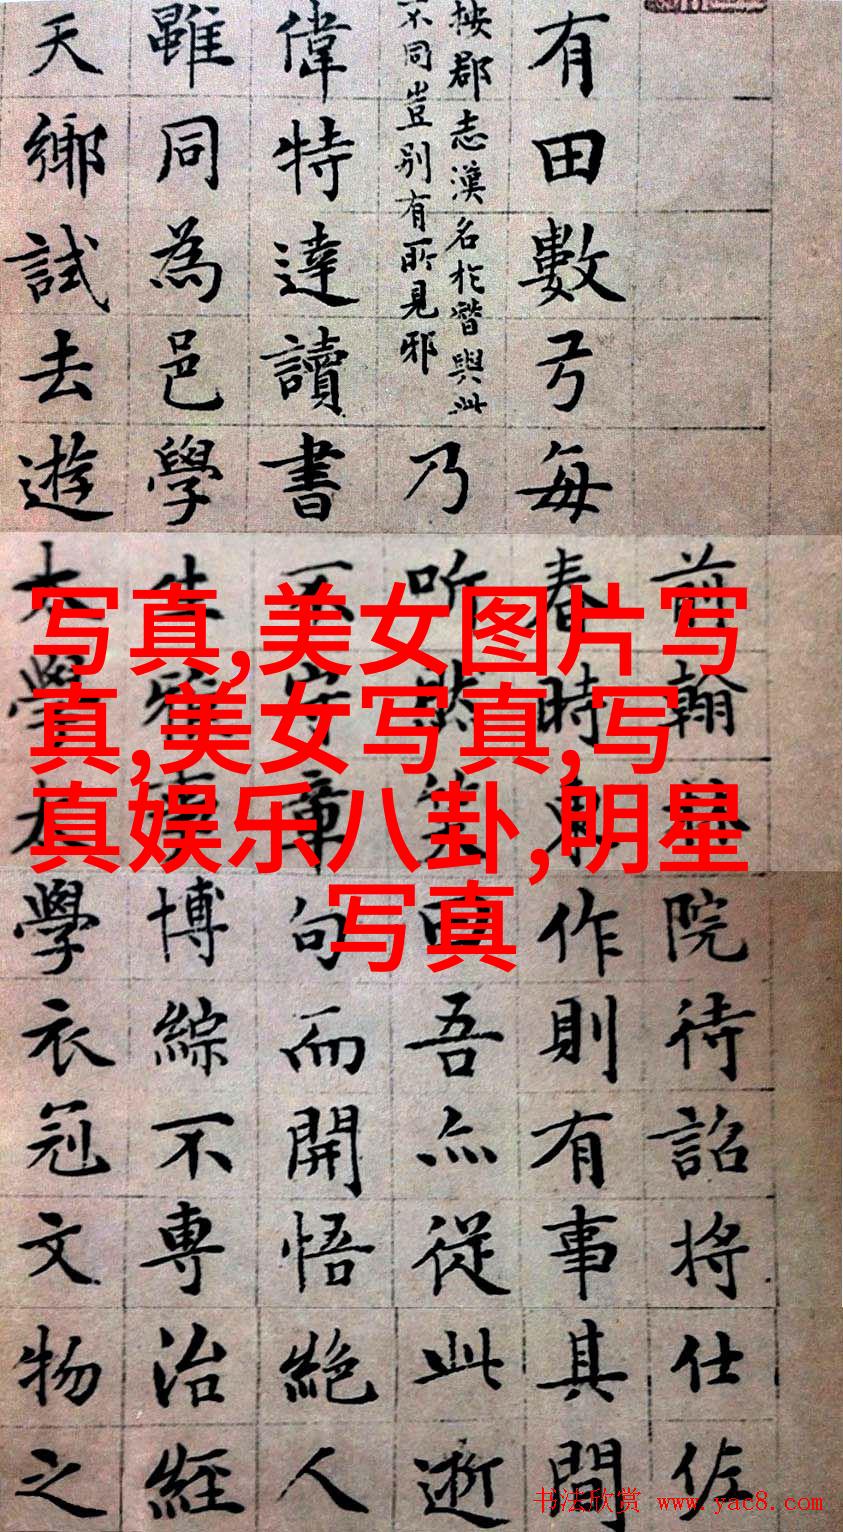 有田數弓每春時東作則有事其間
前翰林院待詔將仕佐
按郡志漢名於潛與此
不同豈别有所見邪
乃听然笑曰吾亦從此逝
偉特達讀書不守章句而開悟絕人
雖同為邑學生雅事博綜不專治經
天鄉試去遊太學太學衣冠文物之
写真,美女图片写
真,美女写真,写
真娱乐八卦,明星
写真
书法欣赏 www.yac8.com